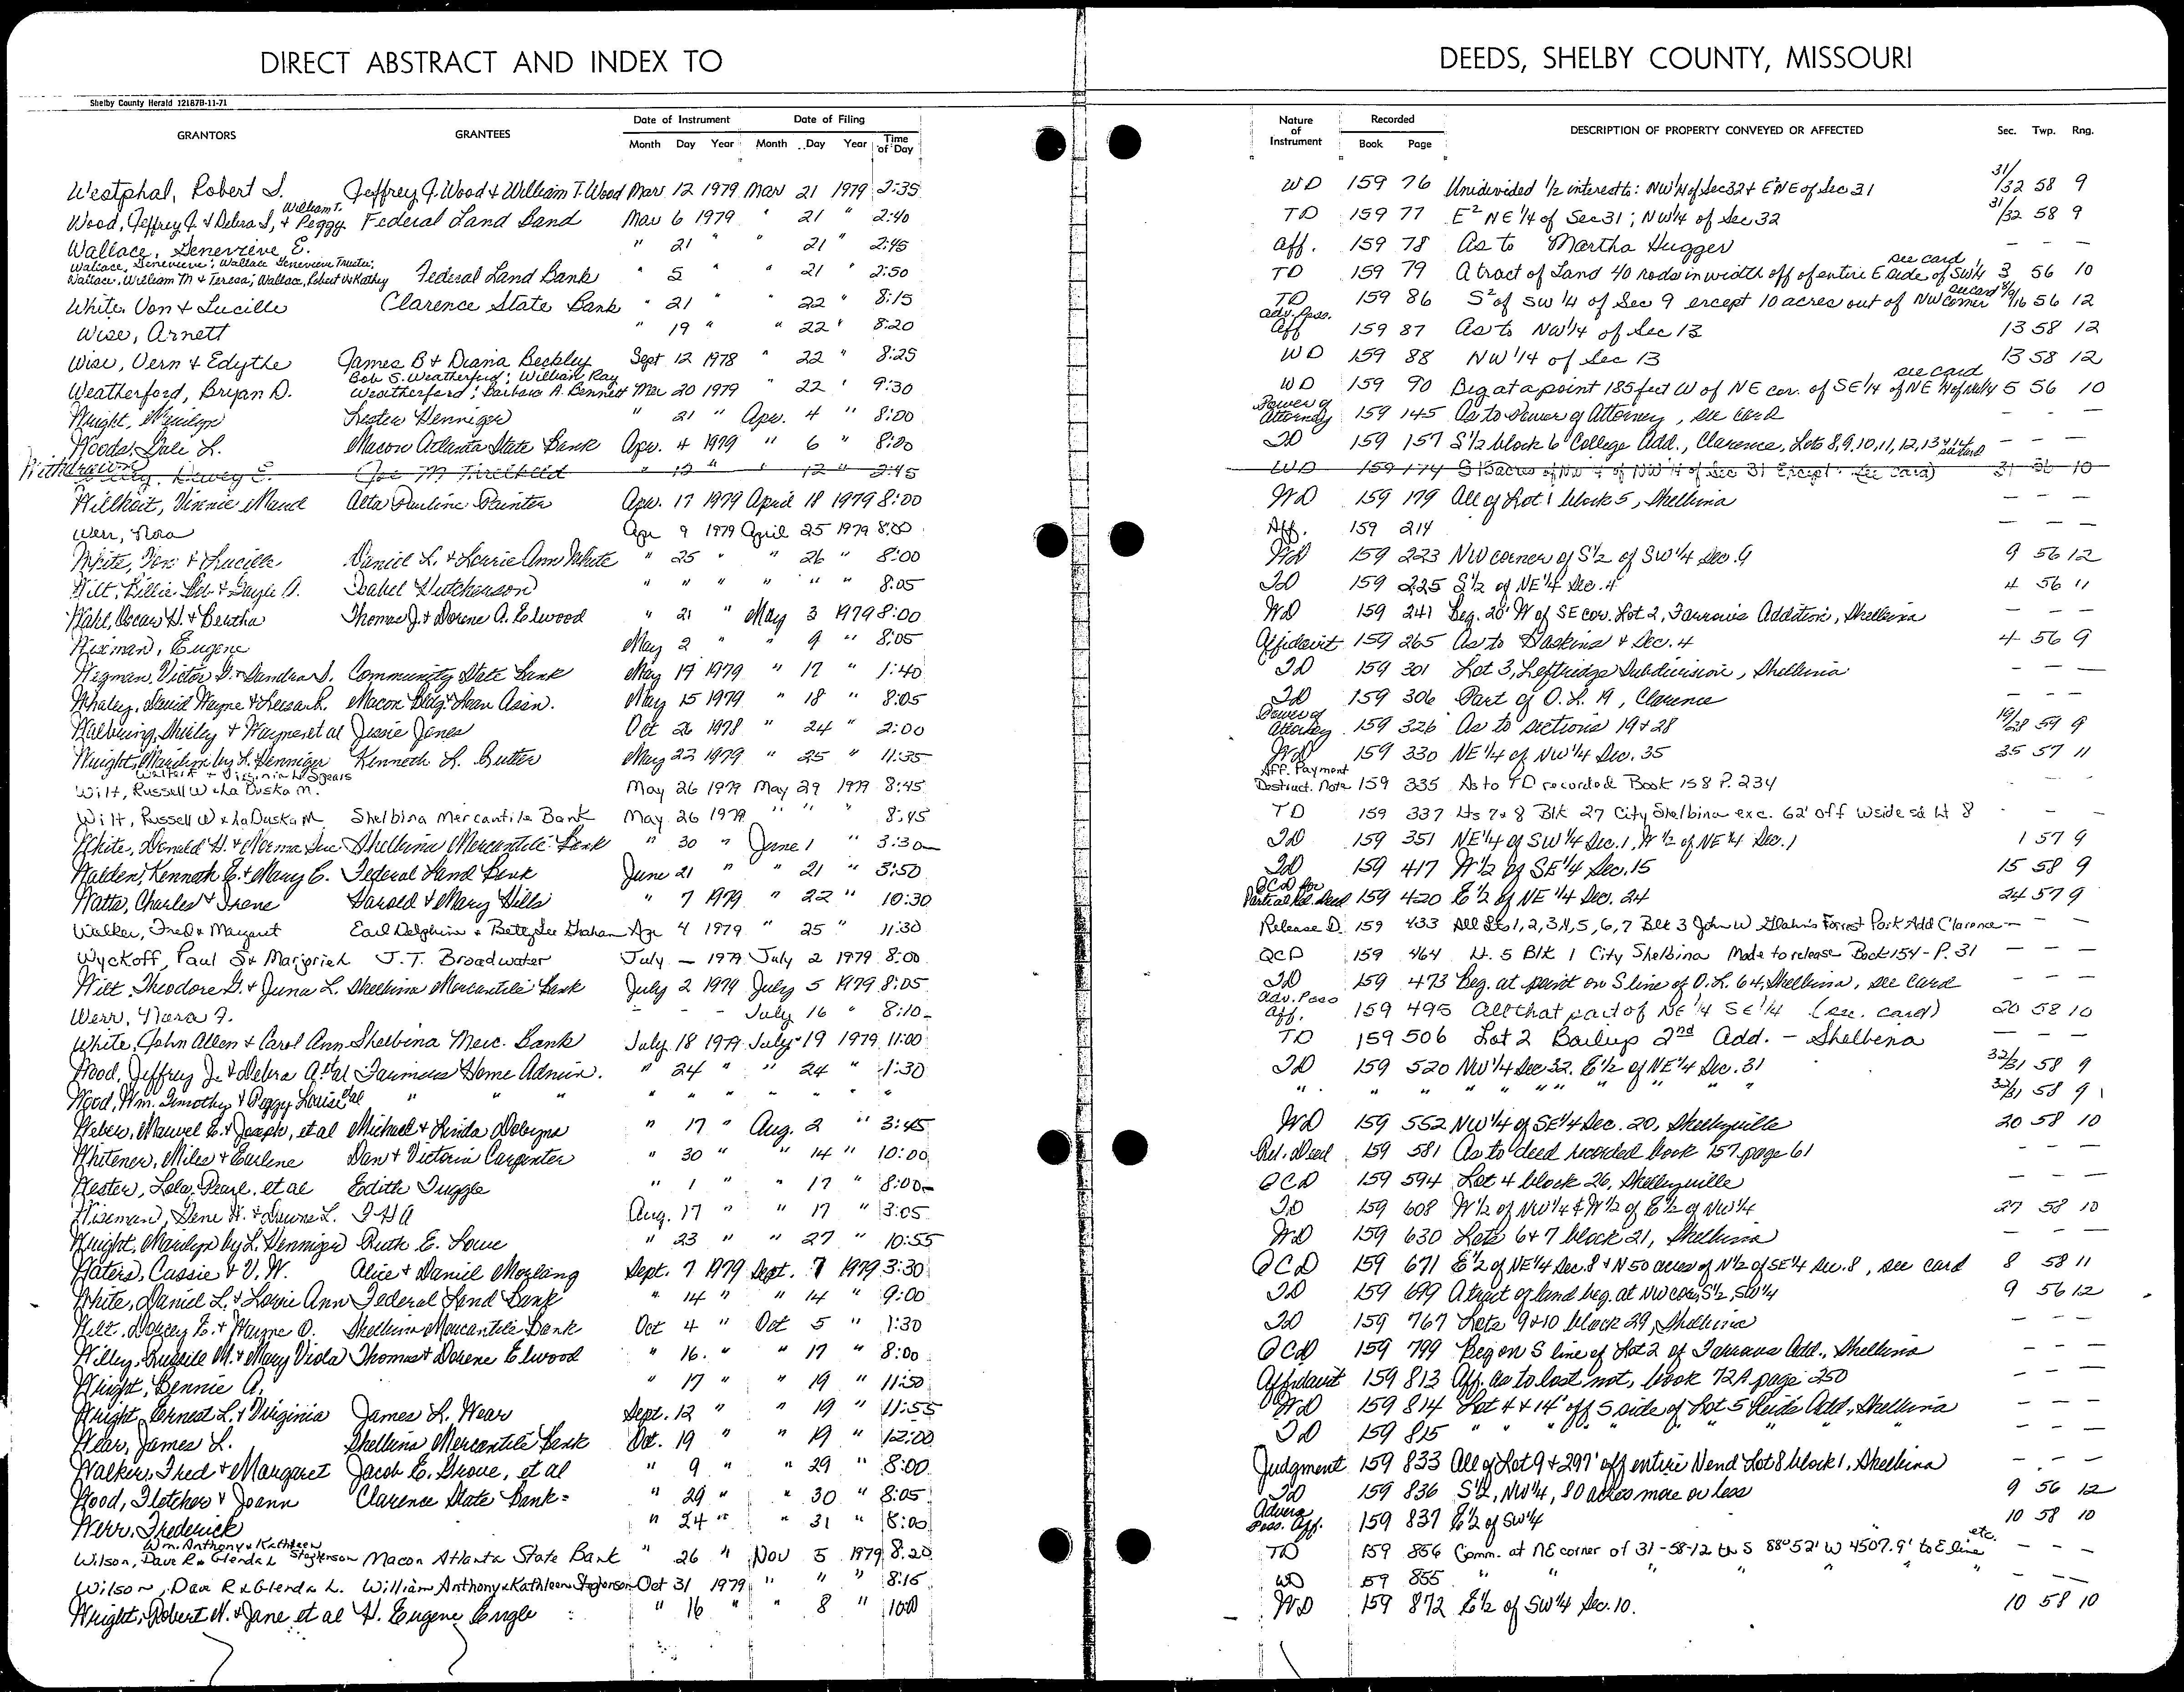 DIRECT ABSTRACT AND INDEX TO
DEEDS, SHELBY COUNTY, MISSOURI
Shelby County Herald 12187B-11-71
GRANTORS GRANTEES Date of Instrument Month Day Year Date of Filing Month Day Year Time of Day Nature of Instrument Recorded Book Page DESCRIPTION OF PROPERTY CONVEYED OR AFFECTED Sec. Twp. Rng.
Westphal, Robert S. Jeffrey J. Wood & William T. Wood Mar 12 1979 Mar 21 1979 2:35 WD 159 76 Unidivided 1/2 interest to: NW 1/4 of Sec 32 & E² NE of Sec 31 31/32 58 9
Wood, Jeffrey J. & Debra S, & William T. Peggy Federal Land Band Mar 6 1979 " 21 " 2:40 TD 159 77 E² NE 1/4 of Sec 31; NW 1/4 of Sec 32 31/32 58 9
Wallace, Genevieve E. " 21 " " 21 " 2:45 aff. 159 78 As to Martha Hugger – – –
Wallace, Genevieve; Wallace Genevieve Trustee;
Wallace, William M & Teresa; Wallace, Robert & Kathy Federal Land Bank " 5 " 21 " 2:50 TD 159 79 A tract of Land 40 rods in width off of entire E side of SW 1/4 see card 3 56 10
White, Von & Lucille Clarence State Bank " 21 " 22 " 8:15 TD 159 86 S² of SW 1/4 of Sec 9 except 10 acres out of NW corner see card 9/16 56 12
Wise, Arnett " 19 " " 22 " 8:20 adv. Poss. Aff 159 87 As to NW 1/4 of Sec 13 13 58 12
Wise, Vern & Edythe James B & Diana Beckley Sept 12 1978 " 22 " 8:25 WD 159 88 NW 1/4 of Sec 13 13 58 12
Weatherford, Bryan D. Bob S. Weatherford; William Ray Weatherford; Barbara A. Bennett Mar 20 1979 " 22 " 9:30 WD 159 90 Beg at a point 185 feet W of NE cor. of SE 1/4 of NE 1/4 see card 5 56 10
Wright, Marilyn Lester Henniger " 21 " Apr. 4 " 8:00 Power of Attorney 159 145 As to Power of Attorney, see card – – –
Woods, Dale L. Macon Atlanta State Bank Apr. 4 1979 " 6 " 8:20 TD 159 157 S 1/2 block 6 College Add., Clarence, Lots 8, 9, 10, 11, 12, 13 & 14 see card – – –
Withdrawn Dewey E. Joe M Threlkeld " 12 " " 12 " 2:45 WD 159 174 31 56 10
Wilhoit, Vinnie Maud Alta Pauline Painter Apr. 17 1979 April 18 1979 8:00 WD 159 179 All of Lot 1 block 5, Shelbina – – –
Werr, Nora Apr 9 1979 April 25 1979 8:00 Aff. 159 214 – – –
White, Von & Lucille Daniel L. & Lourie Ann White " 25 " " 26 " 8:00 WD 159 223 NW corner of S 1/2 of SW 1/4 Sec. 9 9 56 12
Wilt, Billie Bob & Gayle A. Isabel Hutcherson " " " " " " 8:05 TD 159 225 S 1/2 of NE 1/4 Sec. 4 4 56 11
Wahl, Oscar H. & Bertha Thomas J. & Dorene A. Elwood " 21 " May 3 1979 8:00 WD 159 241 Beg. 20' W of SE cor. Lot 2, Farrow's Addition, Shelbina – – –
Wixman, Eugene May 2 " " 9 " 8:05 Affidavit 159 265 As to Haskins & Sec. 4 4 56 9
Wigman, Victor G. & Sandra S. Community State Bank May 17 1979 " 17 " 1:40 TD 159 301 Lot 3, Leftridge Subdivision, Shelbina – – –
Whaley, David Wayne & Leesa R. Macon Bldg & Loan Assn. May 15 1979 " 18 " 8:05 TD 159 306 Part of O.L. 19, Clarence – – –
Walbring, Shirley & Wayne et al Jessie Jones Oct 26 1978 " 24 " 2:00 Power of Attorney 159 326 As to sections 19 & 28 19/28 59 9
Wright, Marilyn by L. Henniger Kenneth L. Butter May 22 1979 " 25 " 11:35 WD 159 330 NE 1/4 of NW 1/4 Sec. 35 35 57 11
Walter K & Virginia L Spears
Wilt, Russell W & La Duska M. May 26 1979 May 29 1979 8:45 Aff. Payment Destruct. Note 159 335 As to TD recorded Book 158 P. 234 – – –
Wilt, Russell W & LaDuska M Shelbina Mercantile Bank May 26 1979 " " " 8:45 TD 159 337 Lts 7 & 8 Blk 27 City Shelbina exc. 62' off W side sd Lt 8 – – –
White, Donald H. & Norma Sue Shelbina Mercantile Bank " 30 " June 1 " 3:30 TD 159 351 NE 1/4 of SW 1/4 Sec. 1, W 1/2 of NE 1/4 Sec. 1 1 57 9
Walden, Kenneth E. & Mary C. Federal Land Bank June 21 " " 21 " 3:50 TD 159 417 W 1/2 of SE 1/4 Sec. 15 15 58 9
Watts, Charles & Irene Harold & Mary Hills " 7 1979 " 22 " 10:30 QCD for Partial Rel. Deed 159 420 E 1/2 of NE 1/4 Sec. 24 24 57 9
Walker, Fred & Margaret Earl Delphin & Betty Lee Graham Apr 4 1979 " 25 " 11:30 Release D. 159 433 All Lts 1, 2, 3, 4, 5, 6, 7 Blk 3 John W Glahn's Forrest Park Add Clarence – – –
Wyckoff, Paul S & Marjorieh J.T. Broadwater July – 1979 July 2 1979 8:00 QCD 159 464 Lt. 5 Blk 1 City Shelbina Made to release Book 154 - P. 31 – – –
Wilt, Theodore G. & Juna L. Shelbina Mercantile Bank July 2 1979 July 5 1979 8:05 TD 159 473 Beg. at point on S line of O.L. 64, Shelbina, see card – – –
Werr, Nora F. – – – July 16 " 8:10 adv. Poss Aff. 159 495 All that part of NE 1/4 SE 1/4 (see card) 20 58 10
White, John Allen & Carol Ann Shelbina Merc. Bank July 18 1979 July 19 1979 11:00 TD 159 506 Lot 2 Bailup 2nd Add. – Shelbina – – –
Wood, Jeffrey J. & Debra A. et al Farmers Home Admin. " 24 " " 24 " 1:30 TD 159 520 NW 1/4 Sec 32. E 1/2 of NE 1/4 Sec. 31 32/31 58 9
Wood, Wm. Timothy & Peggy Louise et al " " " " " " " " " " " " " " " " " " 32/31 58 9
Weber, Marvel E. & Joseph, et al Michael & Linda Dobyns " 17 " Aug. 2 " 3:45 WD 159 552 NW 1/4 of SE 1/4 Sec. 20, Shelbyville 20 58 10
Whitener, Miles & Earlene Dan & Victoria Carpenter " 30 " " 14 " 10:00 Rel. Deed 159 581 As to deed recorded book 157 page 61 – – –
Wester, Lola Pearl, et al Edith Tuggle " 1 " " 17 " 8:00 QCD 159 594 Lot 4 block 26, Shelbyville – – –
Wiseman, Gene H. & Lavene L. FHA Aug. 17 " " 17 " 3:05 TD 159 608 W 1/2 of NW 1/4 & W 1/2 of E 1/2 of NW 1/4 27 58 10
Wright, Marilyn by L. Henniger Ruth E. Lowe " 23 " " 27 " 10:55 WD 159 630 Lots 6 & 7 block 21, Shelbina – – –
Waters, Cassie & V.W. Alice & Daniel Morlang Sept. 7 1979 Sept. 7 1979 3:30 QCD 159 671 E 1/2 of NE 1/4 Sec. 8 & N 50 acres of N 1/2 of SE 1/4 Sec. 8, see card 8 58 11
White, Daniel L. & Lorie Ann Federal Land Bank " 14 " " 14 " 9:00 TD 159 699 A tract of land beg. at NW cor, S 1/2, SW 1/4 9 56 12
Wilt, Dorcey E. & Wayne O. Shelbina Mercantile Bank Oct 4 " Oct 5 " 1:30 TD 159 767 Lots 9 & 10 block 29, Shelbina – – –
Willey, Russell M. & Mary Viola Thomas & Dorene Elwood " 16. " " 17 " 8:00 QCD 159 799 Beg on S line of Lot 2 of Farrows Add., Shelbina – – –
Wright, Bennie A. " 17 " " 19 " 11:50 Affidavit 159 813 Aff. as to lost not, book 72A page 250 – – –
Wright, Ernest L. & Virginia James L. Wear Sept. 12 " " 19 " 11:55 WD 159 814 Lot 4 & 14' off S side of Lot 5 Reids Add., Shelbina – – –
Wear, James L. Shelbina Mercantile Bank Oct. 19 " " 19 " 12:00 TD 159 815 " " " " " " " – – –
Walker, Fred & Margaret Jacob E. Grove, et al " 9 " " 29 " 8:00 Judgment 159 833 All of Lot 9 & 29 1/2' off entire N end Lot 8 block 1, Shelbina – – –
Wood, Fletcher & Joann Clarence State Bank " 29 " " 30 " 8:05 TD 159 836 S 1/2, NW 1/4, 80 acres more or less 9 56 12
Werr, Frederick " 24 " " 31 " 8:00 Advers Poss. Aff. 159 837 E 1/2 of SW 1/4 10 58 10
Wm. Anthony & Kathleen
Wilson, Dave R & Glenda L Stephenson Macon Atlanta State Bank " 26 " Nov 5 1979 8:20 TD 159 856 Comm. at NE corner of 31-58-12 th S 88°52' W 4507.9' to E line etc. – – –
Wilson, Dave R & Glenda L. William Anthony & Kathleen Stephenson Oct 31 1979 " " " 8:15 WD 59 855 " " " " " " – – –
Wright, Robert W. & Jane et al H. Eugene Engle " 16 " " 8 " 10:0 WD 159 872 E 1/2 of SW 1/4 Sec. 10. 10 58 10